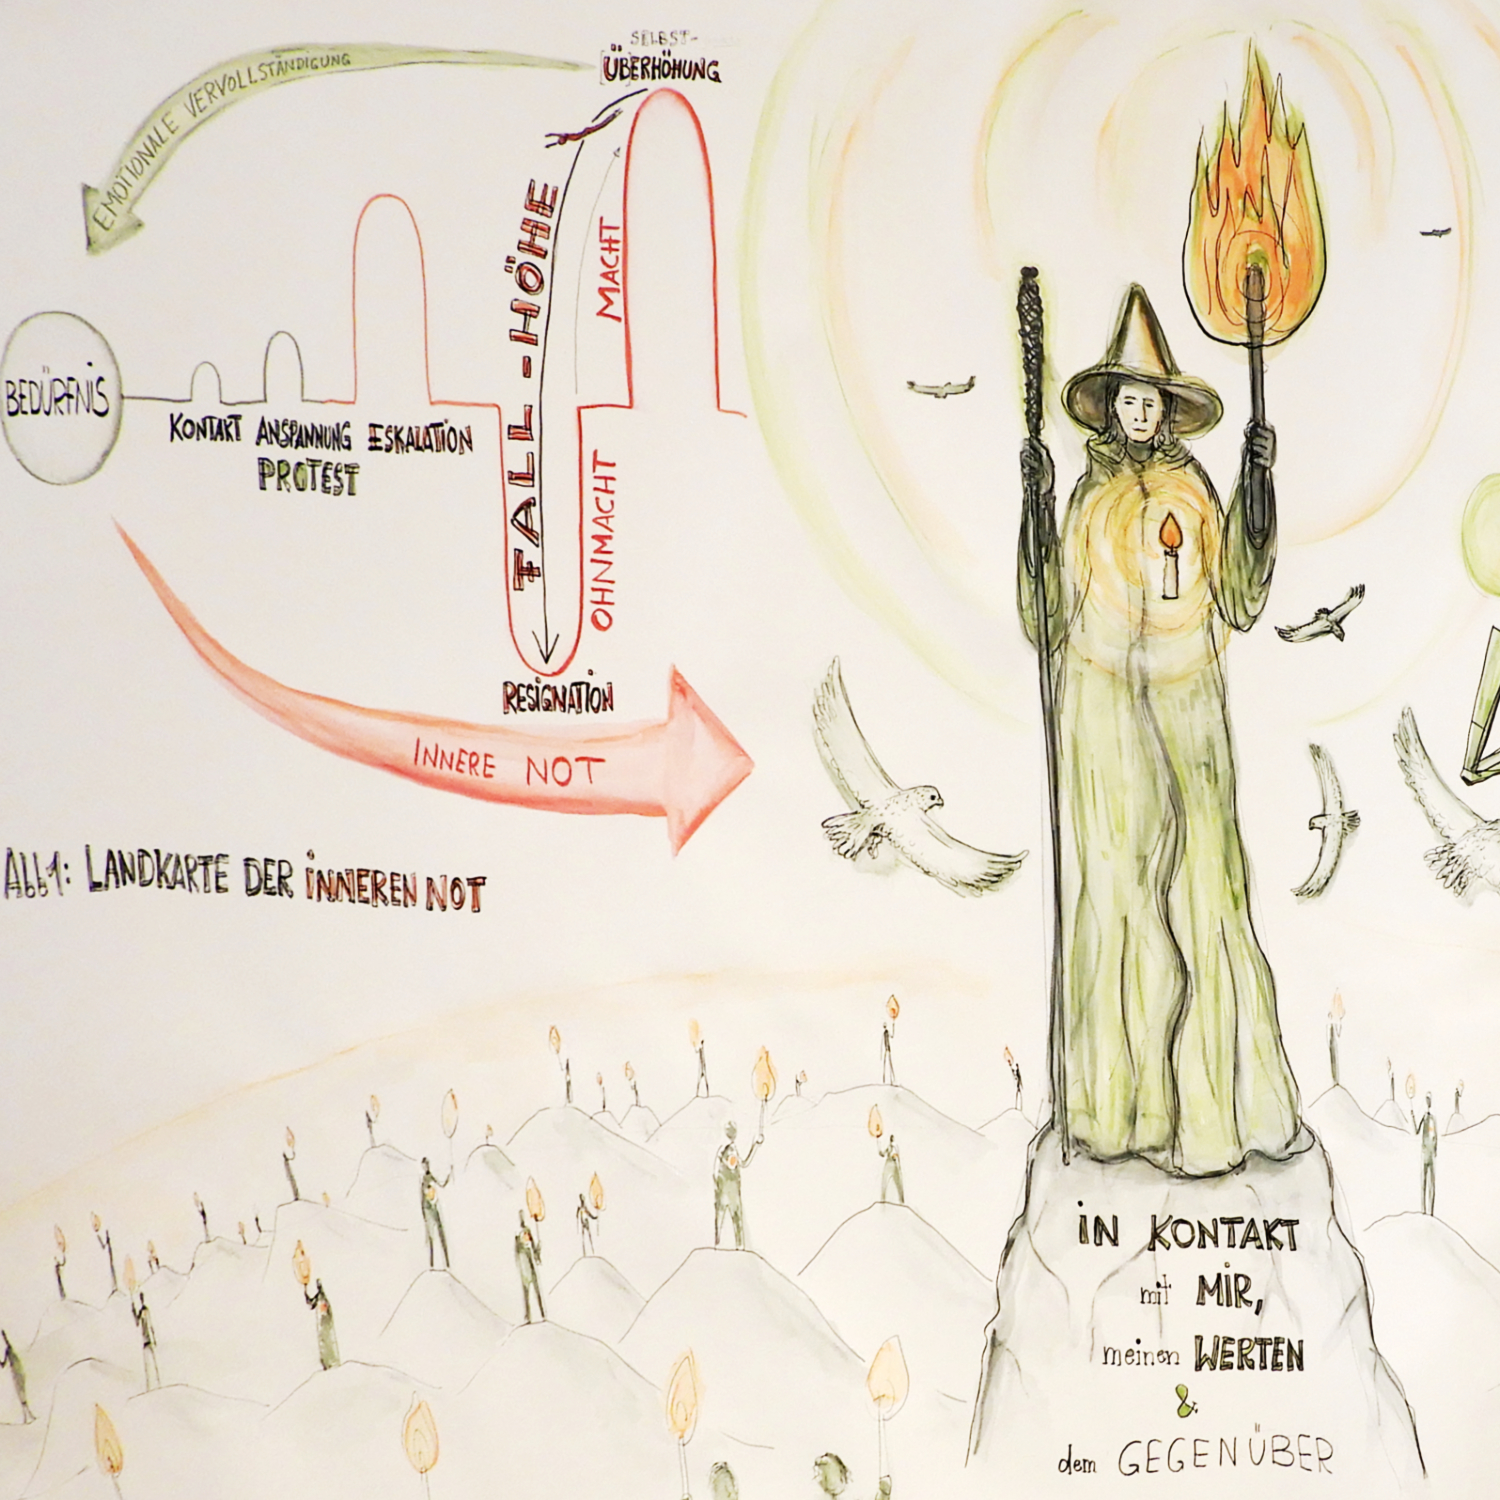 SELBST-
ÜBERHÖHUNG
EMOTIONALE VERVOLLSTÄNDIGUNG
FALL-HÖHE
MACHT
BEDÜRFNIS
KONTAKT ANSPANNUNG ESKALATION
PROTEST
OHNMACHT
RESIGNATION
INNERE NOT
Abb1: LANDKARTE DER INNEREN NOT
IN KONTAKT
mit MIR,
meinen WERTEN
&
dem GEGENÜBER